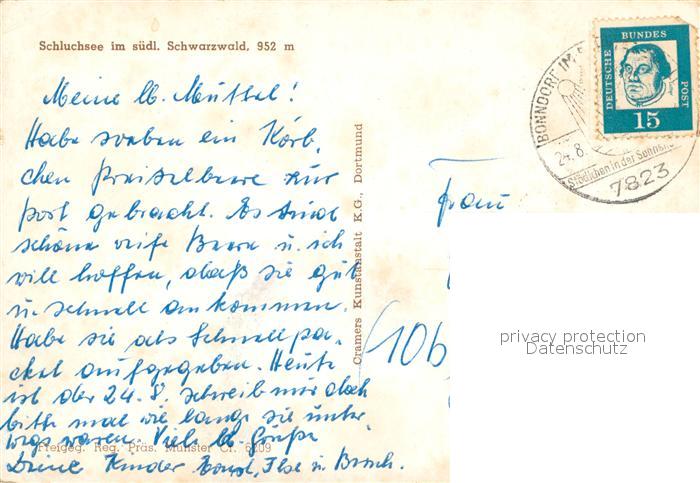 Schluchsee im südl. Schwarzwald, 952 m
Meine lb. Muttel!
Habe soeben ein Körb-
chen Preiselbeere zur
Post gebracht. Es sind
schöne reife Beere u. ich
will hoffen, daß sie gut
u. schnell ankommen.
Habe sie als Schnellpa-
cket aufgegeben. Heute
ist der 24. 8. schreib mir doch
bitte mal wie lange sie unter-
wegs waren. Viele lb. Grüße
Deine Kinder Ilse u.
Freigeg. Reg. Präs. Münster Cr. 6209
Cramers Kunstanstalt K.G., Dortmund
DEUTSCHE BUNDES POST
15
BONNDORF IM
24.8.
Städtchen in der Sonnens
7823
Frau
(10b
privacy protection
Datenschutz